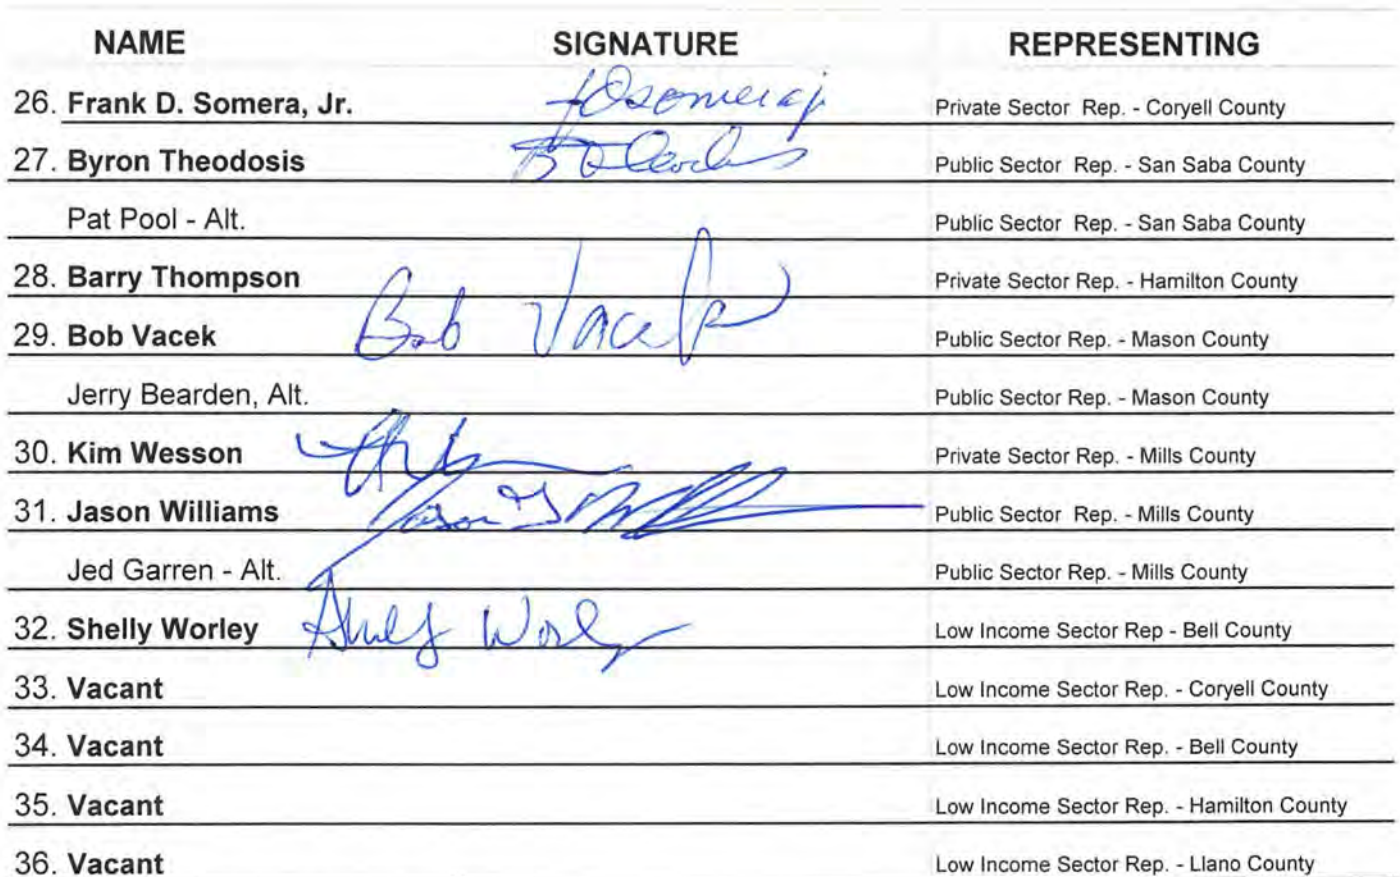 NAME SIGNATURE REPRESENTING
26. Frank D. Somera, Jr. Private Sector Rep. - Coryell County
27. Byron Theodosis Public Sector Rep. - San Saba County
Pat Pool - Alt. Public Sector Rep. - San Saba County
28. Barry Thompson Private Sector Rep. - Hamilton County
29. Bob Vacek Bob Vacek Public Sector Rep. - Mason County
Jerry Bearden, Alt. Public Sector Rep. - Mason County
30. Kim Wesson Private Sector Rep. - Mills County
31. Jason Williams Jason Public Sector Rep. - Mills County
Jed Garren - Alt. Public Sector Rep. - Mills County
32. Shelly Worley Public Low Income Sector Rep - Bell County
33. Vacant Low Income Sector Rep. - Coryell County
34. Vacant Low Income Sector Rep. - Bell County
35. Vacant Low Income Sector Rep. - Hamilton County
36. Vacant Low Income Sector Rep. - Llano County